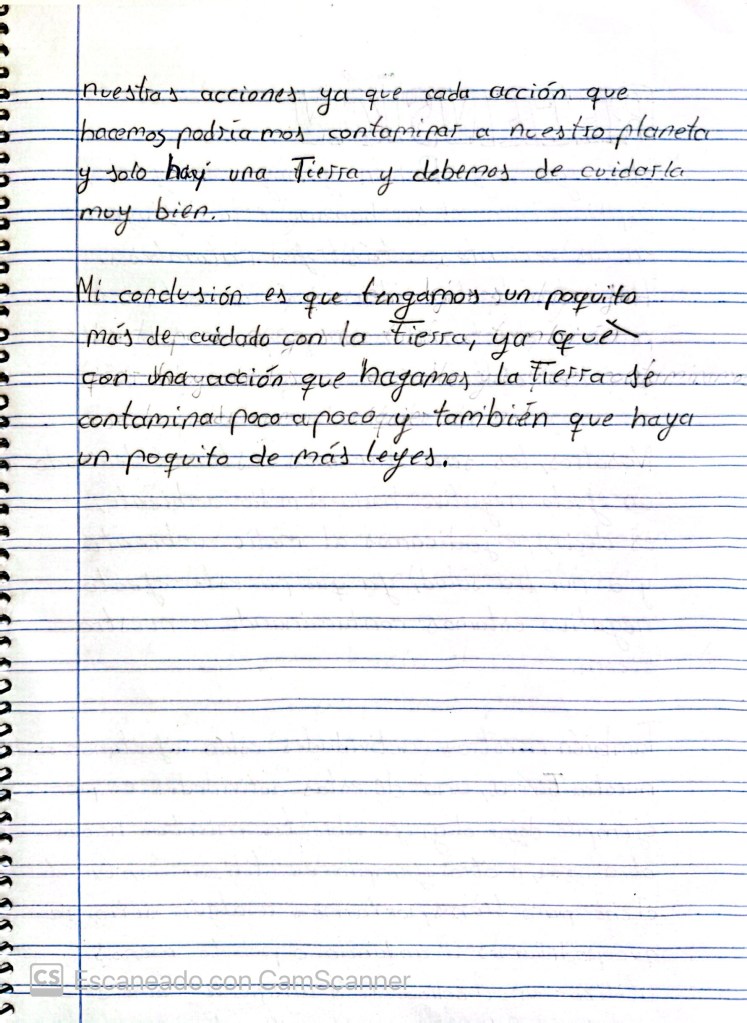 nuestras acciones ya que cada acción que
hacemos podríamos contaminar a nuestro planeta
y solo hay una Tierra y debemos de cuidarla
muy bien.
Mi conclusión es que tengamos un poquito
más de cuidado con la Tierra, ya que
con una acción que hagamos la Tierra se
contamina poco a poco y también que haya
un poquito de más leyes.
CS Escaneado con CamScanner